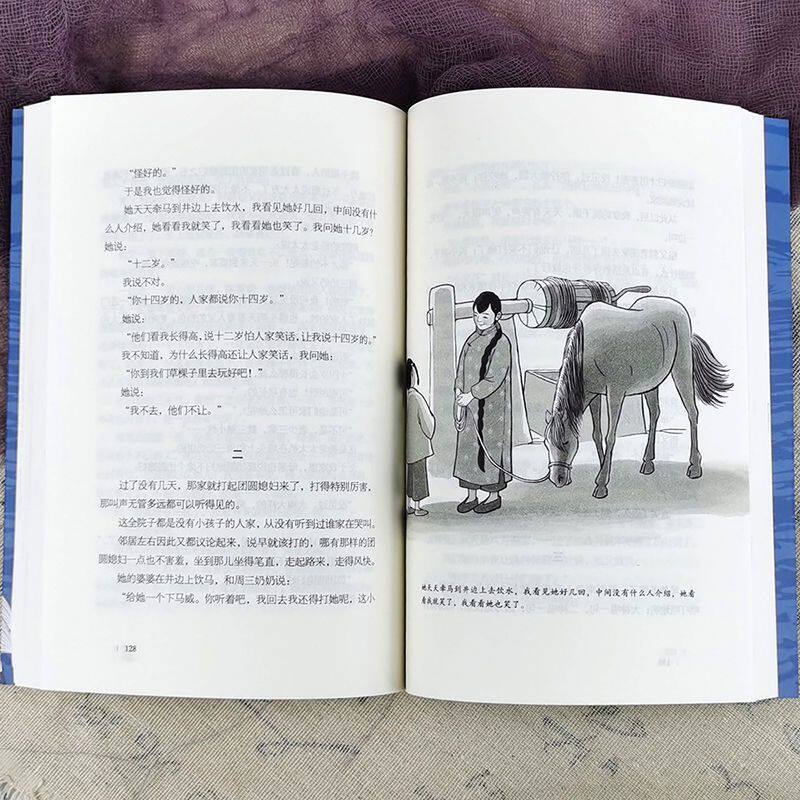 “怪好的。”
于是我也觉得怪好的。
她天天牵马到井边上去饮水，我看见她好几回，中间没有什
么人介绍，她看看我就笑了，我看看她也笑了。我问她十几岁？
她说：
“十二岁。”
我说不对。
“你十四岁的，人家都说你十四岁。”
她说：
“他们看我长得高，说十二岁怕人家笑话，让我说十四岁的。”
我不知道，为什么长得高还让人家笑话，我问她：
“你到我们草棵子里去玩好吧！”
她说：
“我不去，他们不让。”
二
过了没有几天，那家就打起团圆媳妇来了，打得特别厉害，
那叫声无管多远都可以听得见的。
这全院子都是没有小孩子的人家，从没有听到过谁家在哭叫。
邻居左右因此又都议论起来，说早就该打的，哪有那样的团
圆媳妇一点也不害羞，坐到那儿坐得笔直，走起路来，走得风快。
她的婆婆在井边上饮马，和周三奶奶说：
“给她一个下马威。你听着吧，我回去我还得打她呢，这小
128
她天天牵马到井边上去饮水，我看见她好几回，中间没有什么人介绍，她看
看我就笑了，我看看她也笑了。